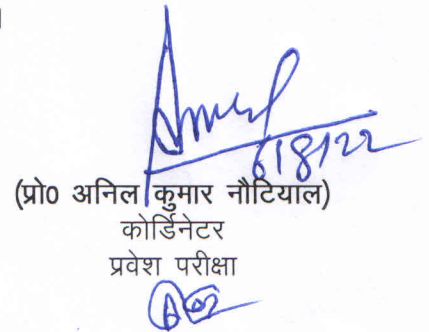 6/8/22
(प्रो0 अनिल कुमार नौटियाल)
कोर्डिनेटर
प्रवेश परीक्षा